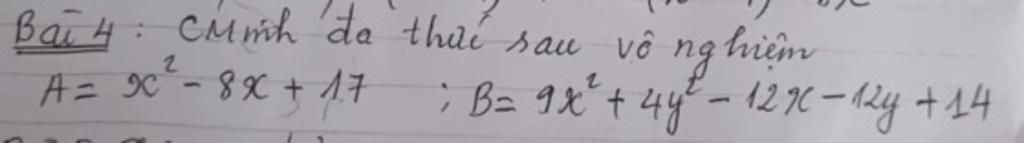 Bài 4 : CMinh đa thức sau vô nghiệm
A = x² - 8x + 17 ; B = 9x² + 4y² - 12x - 12y + 14